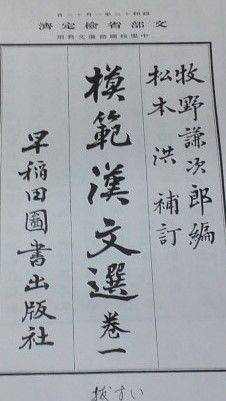 昭和十三年一月十二日
文部省檢定濟
中學校國語漢文科用
牧野謙次郎編
松本洪補訂
模範漢文選 卷一
早稲田圖書出版社
拔すい